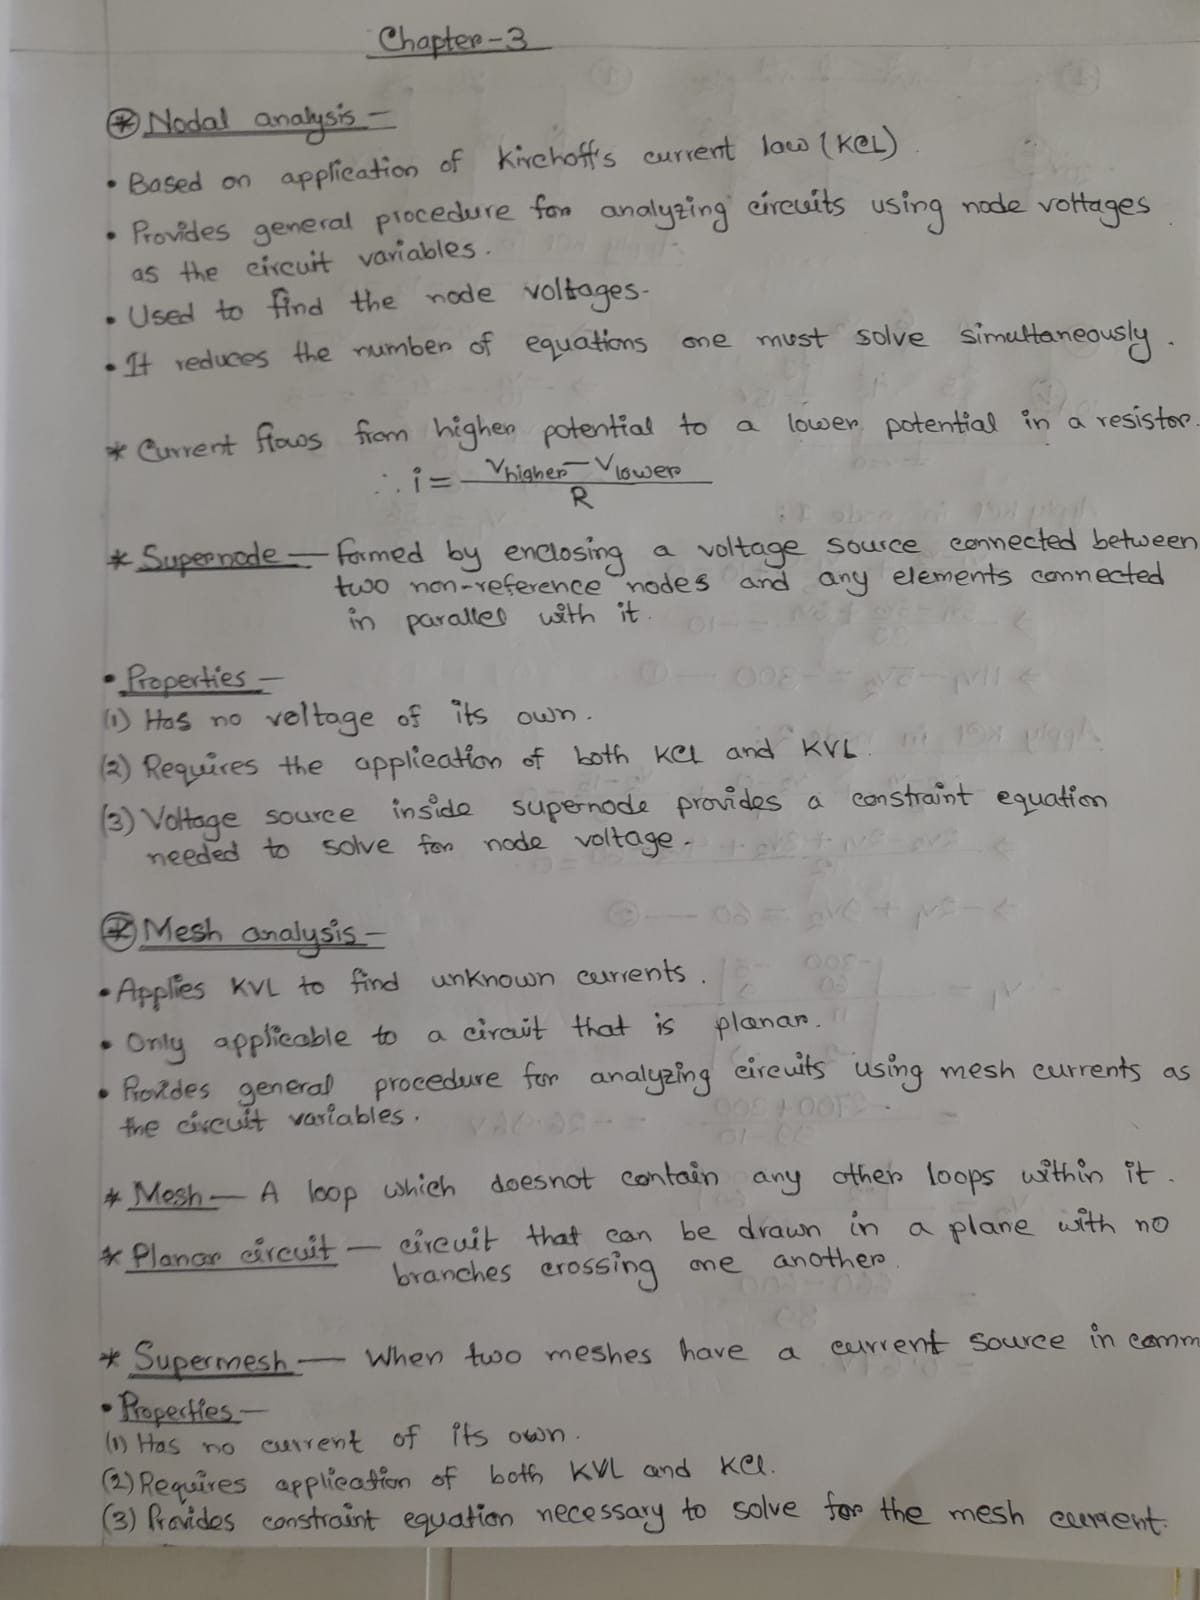 Chapter-3
* Nodal analysis -
• Based on application of Kirchoff's current law (KCL).
• Provides general procedure for analyzing circuits using node voltages
as the circuit variables.
• Used to find the node voltages.
• It reduces the number of equations one must solve simultaneously.
* Current flows from higher potential to a lower potential in a resistor.
∴ i = (V higher - V lower) / R
* Supernode — formed by enclosing a voltage source connected between
two non-reference nodes and any elements connected
in parallel with it.
• Properties —
(1) Has no voltage of its own.
(2) Requires the application of both KCL and KVL.
(3) Voltage source inside supernode provides a constraint equation
needed to solve for node voltage.
* Mesh analysis -
• Applies KVL to find unknown currents.
• Only applicable to a circuit that is planar.
• Provides general procedure for analyzing circuits using mesh currents as
the circuit variables.
* Mesh — A loop which doesnot contain any other loops within it.
* Planar circuit — circuit that can be drawn in a plane with no
branches crossing one another.
* Supermesh — When two meshes have a current source in comm
• Properties —
(1) Has no current of its own.
(2) Requires application of both KVL and KCL.
(3) Provides constraint equation necessary to solve for the mesh current.